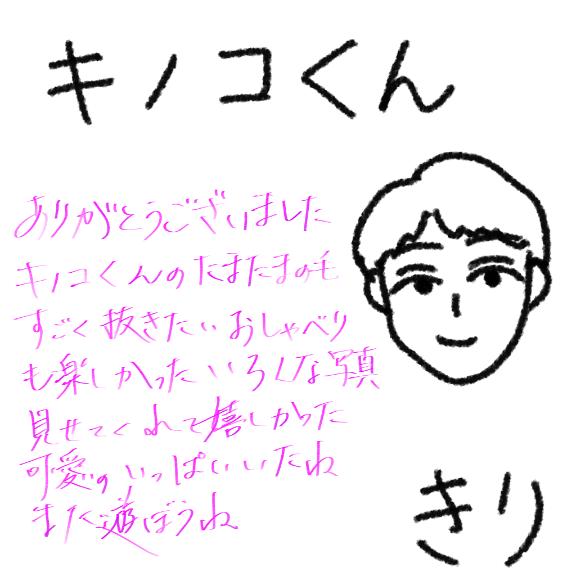 キノコくん
ありがとうございました
キノコくんのたまたまの毛
すごく抜きたいおしゃべり
も楽しかったいろんな写真
見せてくれて嬉しかった
可愛のいっぱいいたね
また遊ぼうね
きり